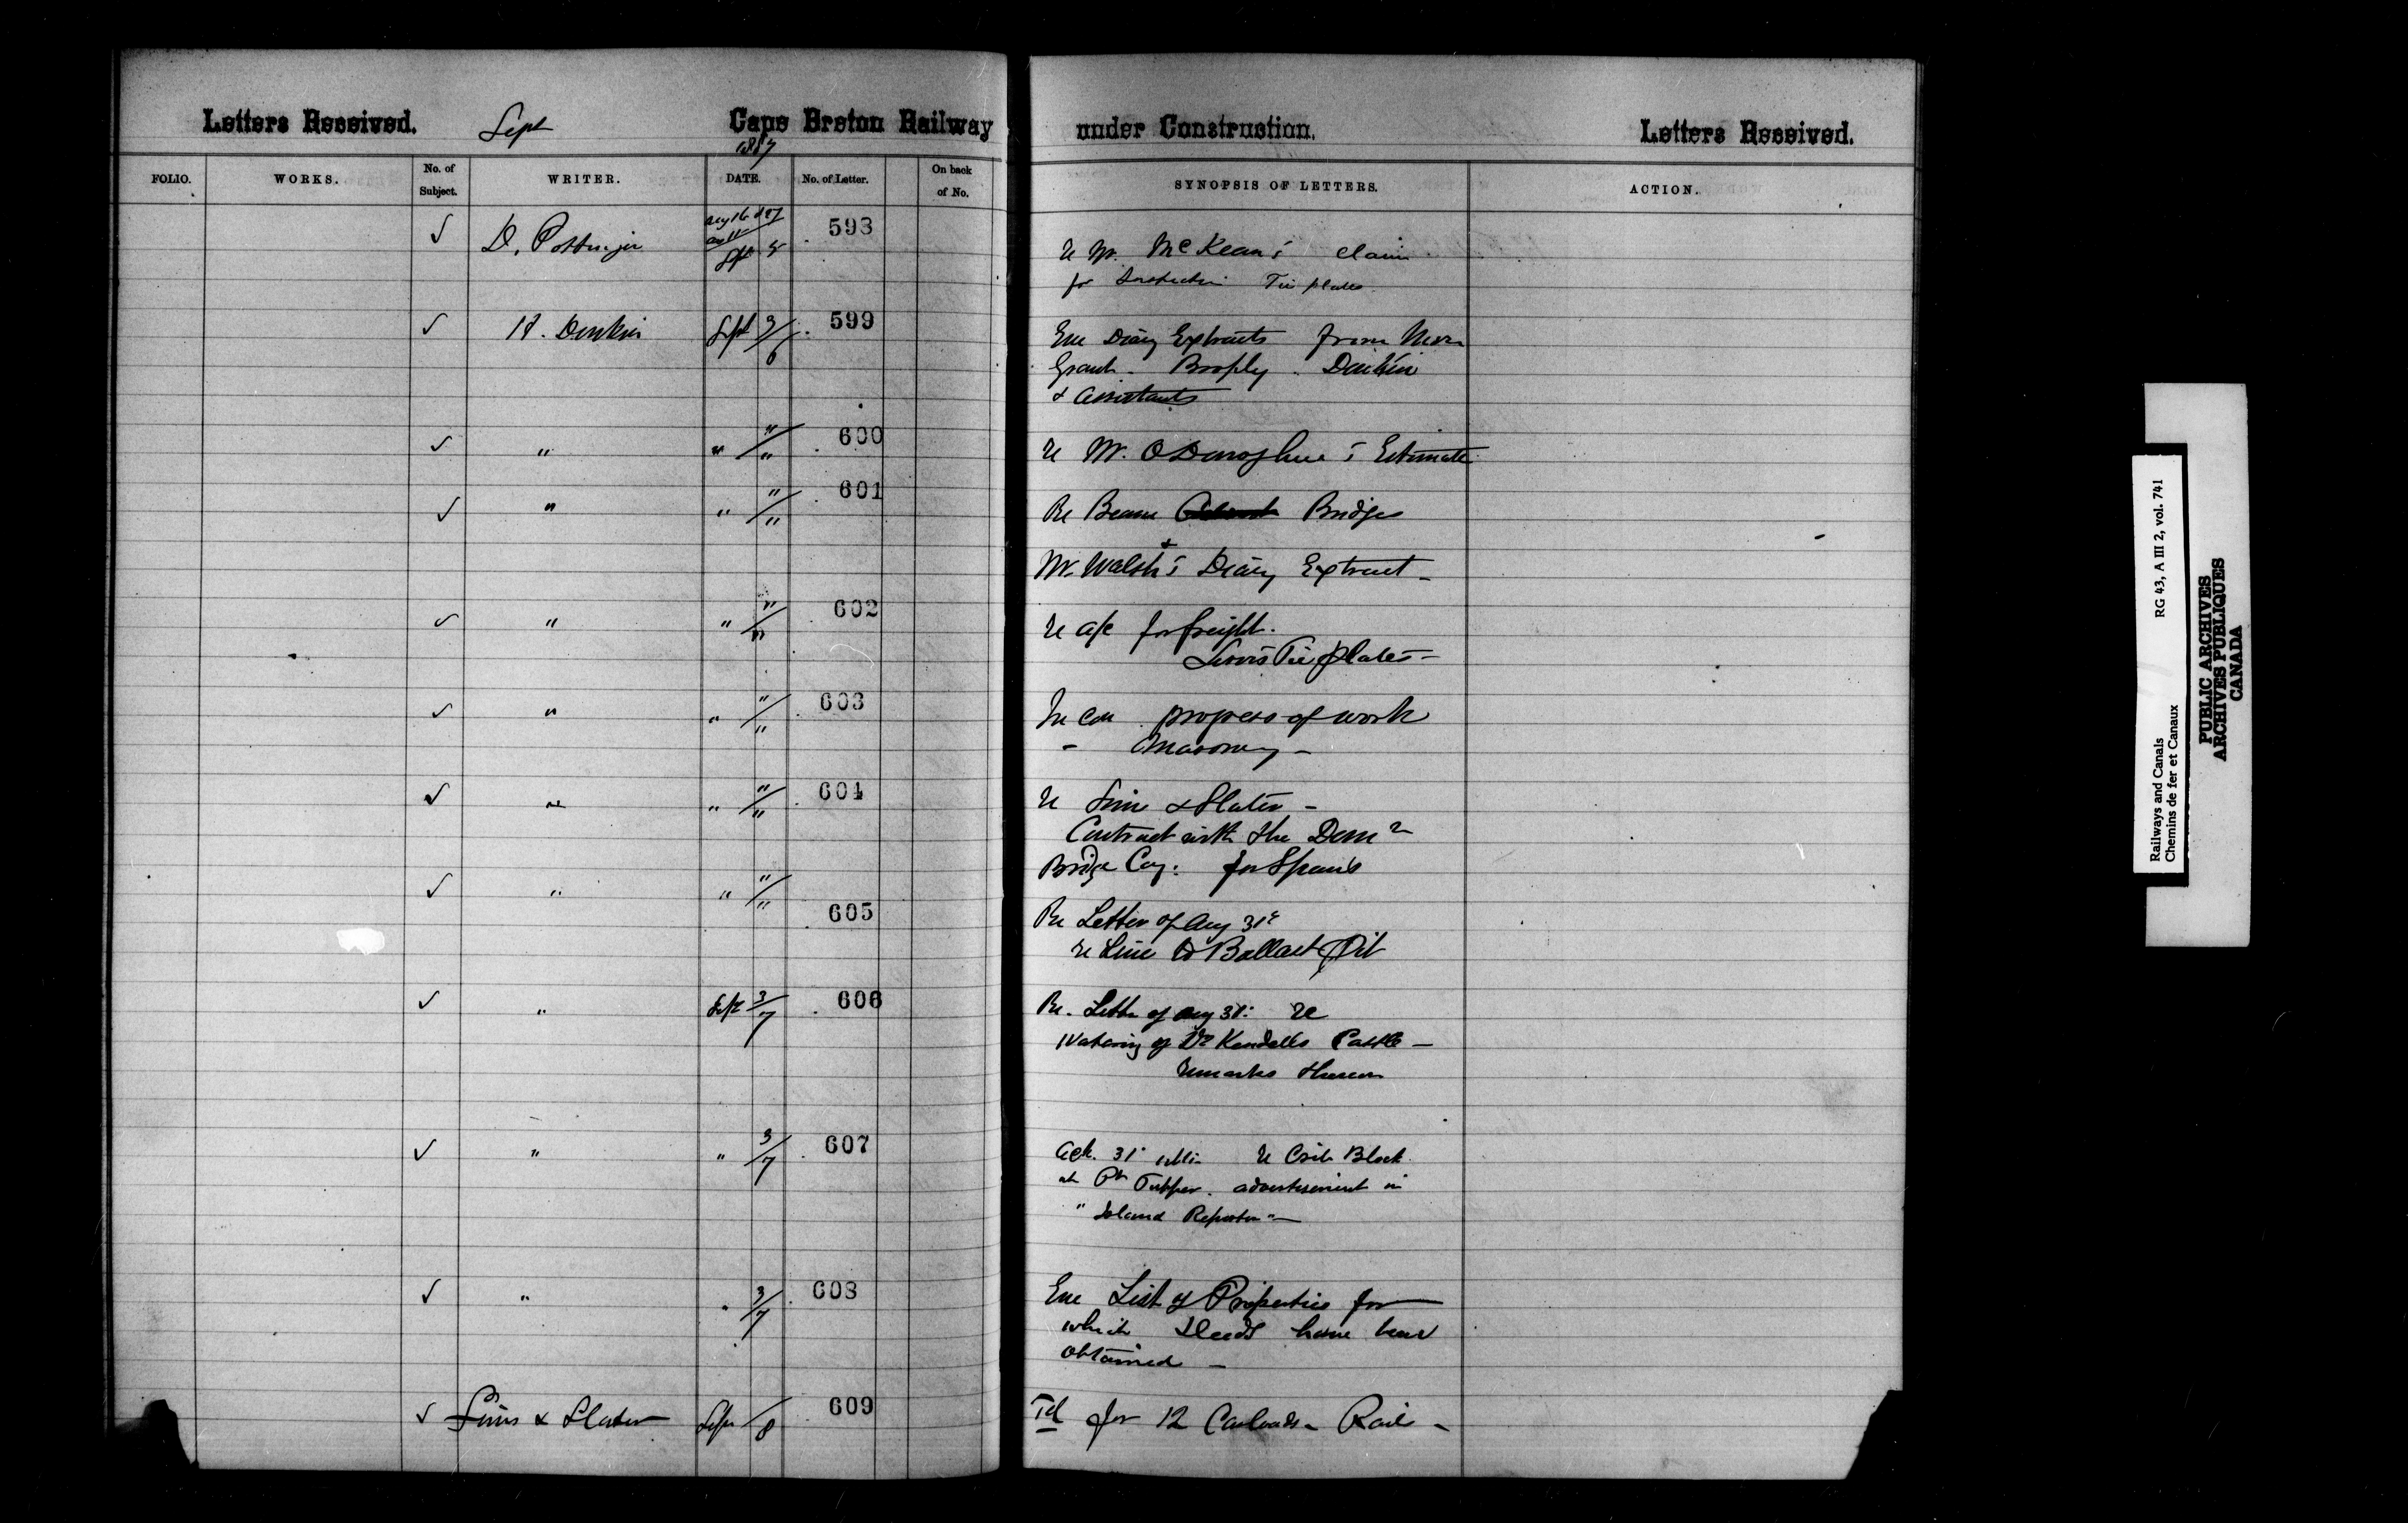 Letters Received. Sept Cape Breton Railway under Construction. Letters Received.
1887
FOLIO. WORKS. No. of Subject. WRITER. DATE. No. of Letter. On back of No. SYNOPSIS OF LETTERS. ACTION.
✓ D. Pottinger Sept 5 598 re Mr. McKean's claim
for Inspection Tie plates
✓ H. Donkin Sept 3/6 599 Enc Diary Extracts from
Grant - Brophy.
& assistants
✓ " " "/" 600 re Mr. O'Donoghue's Estimate
✓ " " "/" 601 Re Beam Bridges
&
Mr. Walsh's Diary Extract -
✓ " " "/" 602 re a/c for freight.
Tie plates -
✓ " " "/" 603 progress of work
- Masonry -
✓ " " "/" 604 re Sims & Slater -
Contract with the Domn
Bridge Coy: for Spans
✓ " " "/" 605 Re Letter of Aug 31st
re Line to Ballast Pit
✓ " Sept 3/7 606 Re. Letter of Aug 31st re
Watering of Dr Kendall's Cattle -
remarks thereon
✓ " " 3/7 607 Ack. 31st ulto re Crib Block
at Pt Tupper. advertisement in
"Island Reporter" -
✓ " " 3/7 608 Enc List of Properties for
which Deeds have been
obtained -
✓ Sims & Slater Sept /8 609 Tel for 12 Carloads - Rails -
Railways and Canals RG 43, A III 2, vol. 741
Chemins de fer et Canaux
PUBLIC ARCHIVES
ARCHIVES PUBLIQUES
CANADA